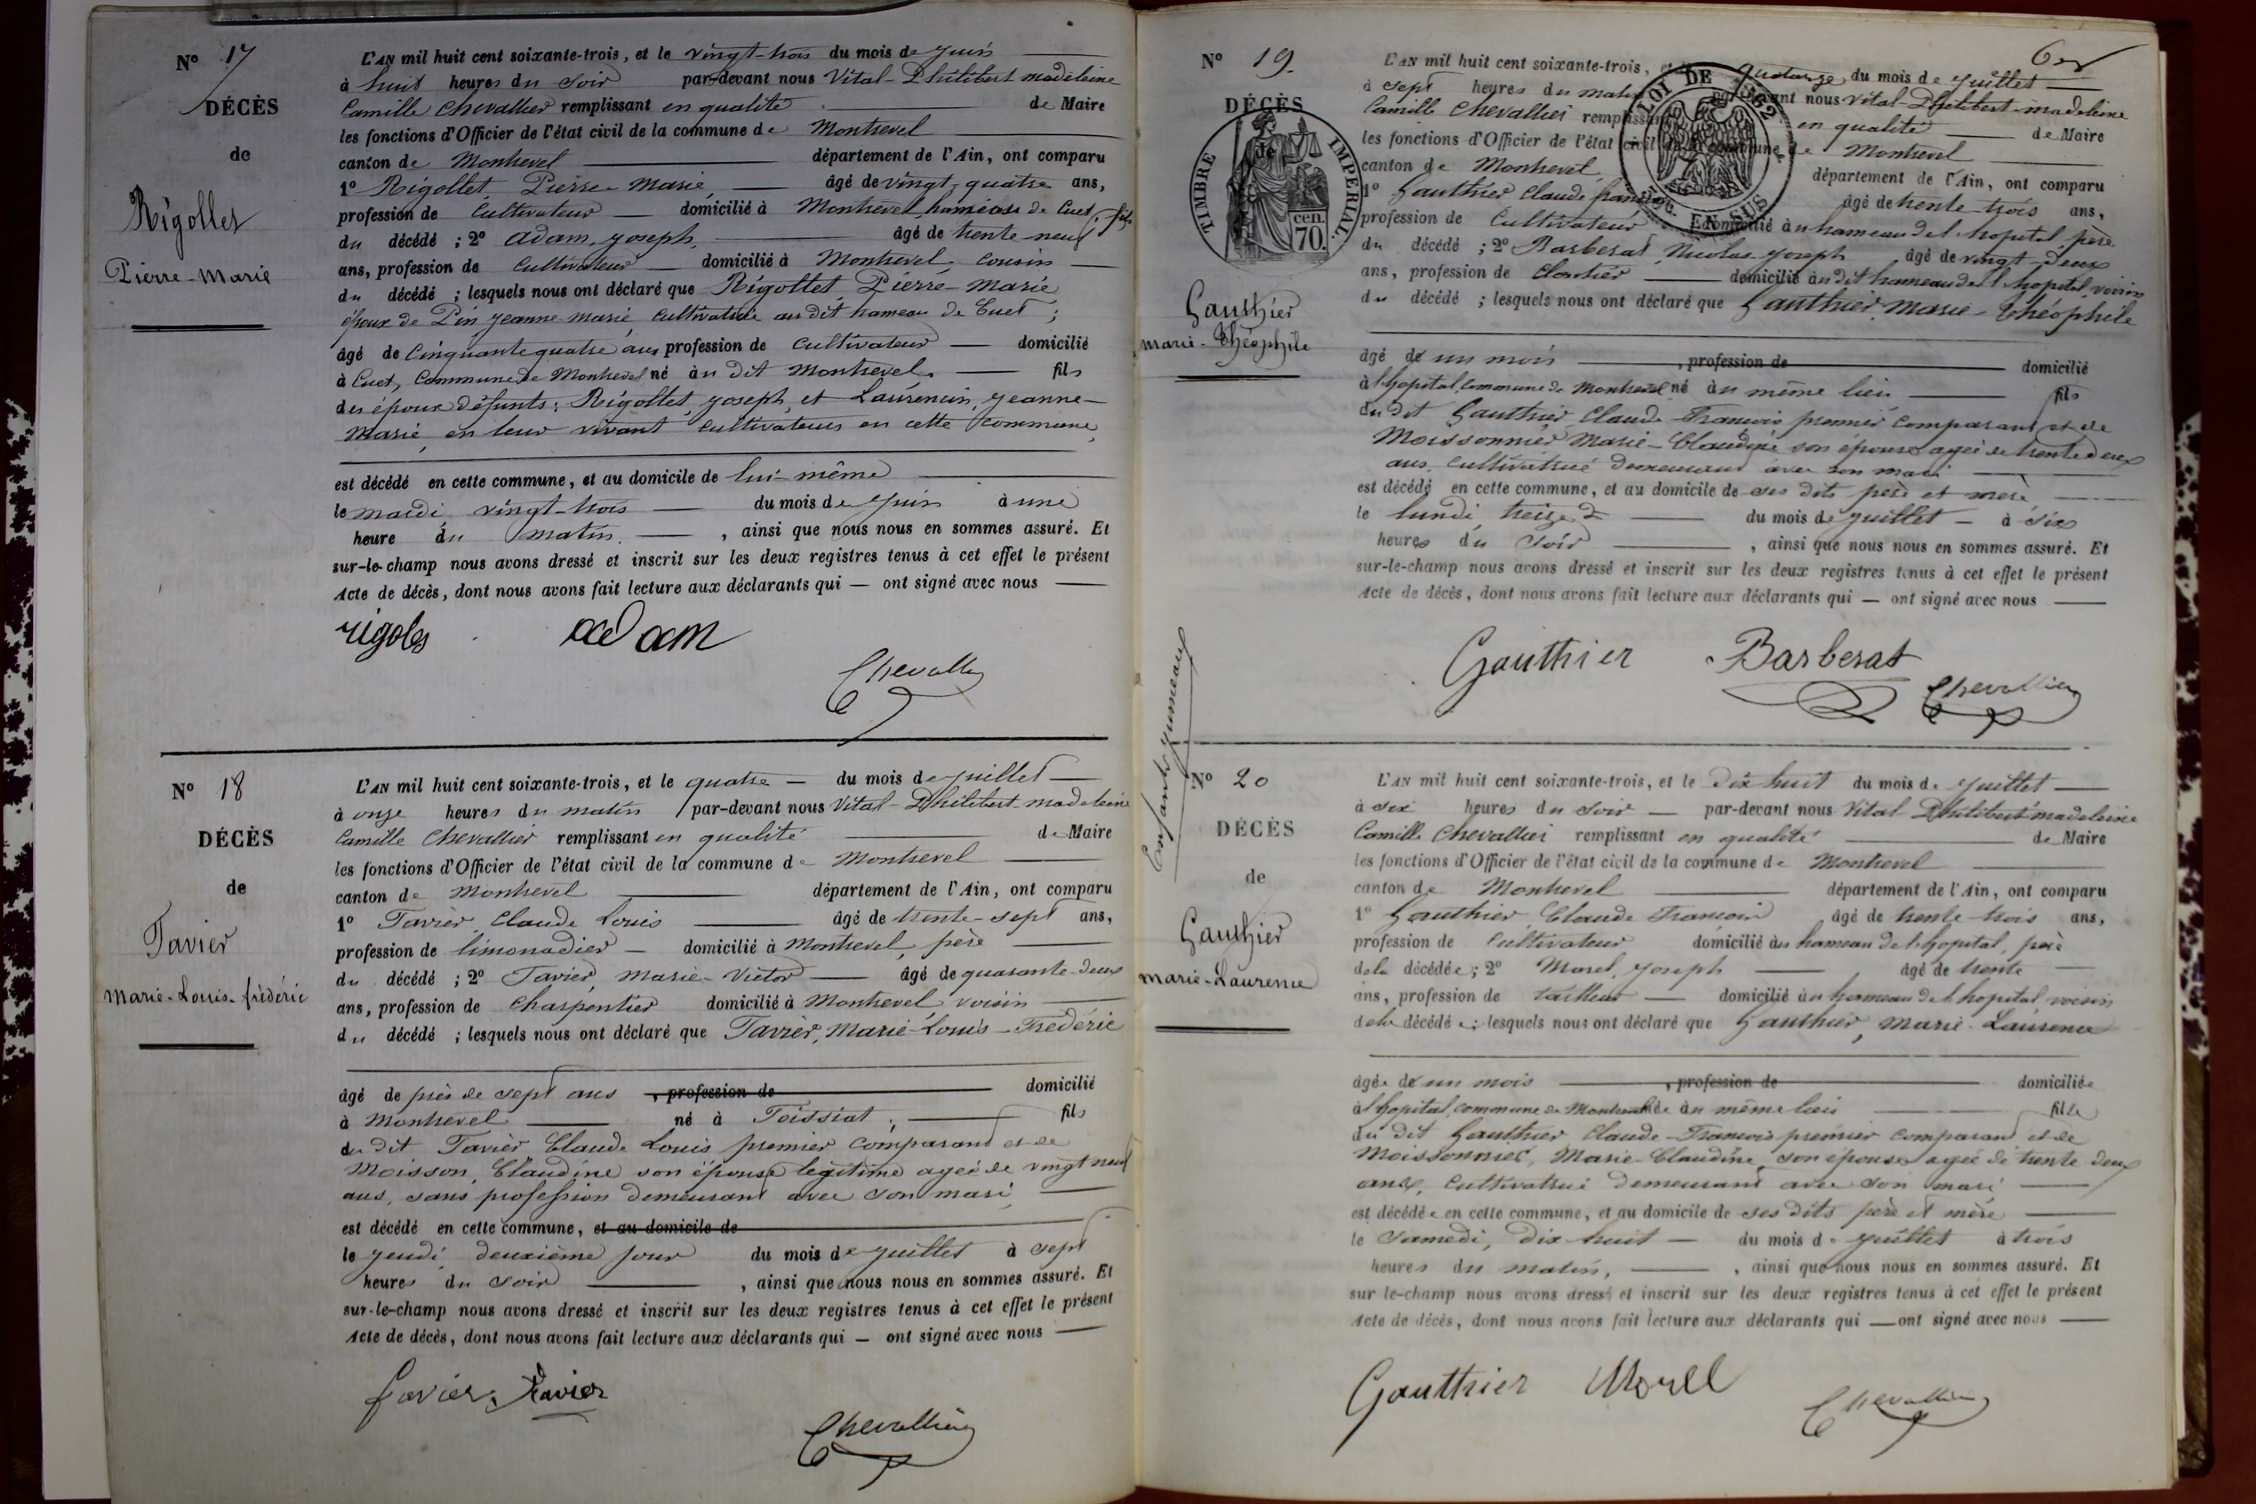 Nº 17
DÉCÈS
de
Rigollet
Pierre-Marie
L'AN mil huit cent soixante-trois, et le vingt-trois du mois de juin
à huit heures du soir par-devant nous Vital-Philibert madeleine
Camille Chevallier remplissant en qualité de Maire
les fonctions d'Officier de l'état civil de la commune de Montrevel
canton de Montrevel département de l'Ain, ont comparu
1º Rigollet Pierre-Marie, âgé de vingt-quatre ans,
profession de Cultivateur domicilié à Montrevel, hameau de Cuet, fils
du décédé ; 2º Adam, Joseph, âgé de trente-neuf
ans, profession de Cultivateur domicilié à Montrevel, cousin
du décédé ; lesquels nous ont déclaré que Rigollet Pierre-Marie
époux de Pin Jeanne-Marie, cultivatrice au dit hameau de Cuet ;
âgé de Cinquante quatre ans profession de Cultivateur domicilié
à Cuet, Commune de Montrevel né au dit Montrevel. fils
des époux défunts : Rigollet, Joseph, et Laurencin, Jeanne-
Marie, en leur vivant cultivateurs en cette commune,
est décédé en cette commune, et au domicile de lui-même
le mardi vingt-trois du mois de juin à une
heure du matin. , ainsi que nous nous en sommes assuré. Et
sur-le-champ nous avons dressé et inscrit sur les deux registres tenus à cet effet le présent
Acte de décès, dont nous avons fait lecture aux déclarants qui — ont signé avec nous
rigolet adam
Chevallier
Nº 18
DÉCÈS
de
Favier
Marie-Louis-frédéric
L'AN mil huit cent soixante-trois, et le quatre du mois de juillet
à onze heures du matin par-devant nous Vital Philibert madeleine
Camille Chevallier remplissant en qualité de Maire
les fonctions d'Officier de l'état civil de la commune de Montrevel
canton de Montrevel département de l'Ain, ont comparu
1º Favier, Claude Louis âgé de trente-sept ans,
profession de limonadier domicilié à Montrevel, père
du décédé ; 2º Favier, Marie-Victor âgé de quarante-deux
ans, profession de Charpentier domicilié à Montrevel, voisin
du décédé ; lesquels nous ont déclaré que Favier, Marie-Louis-Frédéric
âgé de près de sept ans , profession de domicilié
à Montrevel né à Foissiat ; fils
du dit Favier Claude Louis premier comparant et de
Moisson, Claudine son épouse légitime agée de vingt neuf
ans, sans profession demeurant avec son mari,
est décédé en cette commune, et au domicile de
le jeudi, deuxième jour du mois de juillet à sept
heures du soir , ainsi que nous nous en sommes assuré. Et
sur-le-champ nous avons dressé et inscrit sur les deux registres tenus à cet effet le présent
Acte de décès, dont nous avons fait lecture aux déclarants qui — ont signé avec nous
favier. favier
Chevallier
Nº 19.
DÉCÈS
de
TIMBRE IMPERIAL.
cen.
70.
Gauthier
marie-Théophile
LOI DE 1862
EN SUS
L'AN mil huit cent soixante-trois, et le quatorze du mois de juillet
à sept heures du matin par-devant nous Vital-Philibert-madeleine
Camille Chevallier remplissant en qualité de Maire
les fonctions d'Officier de l'état civil de la commune de Montrevel
canton de Montrevel, département de l'Ain, ont comparu
1º Gauthier Claude françois âgé de trente-trois ans,
profession de Cultivateur domicilié au hameau de l'hopital, père
du décédé ; 2º Barberat, Nicolas Joseph âgé de vingt-deux
ans, profession de Cloutier domicilié au dit hameau de l'hopital, voisin
du décédé ; lesquels nous ont déclaré que Gauthier, Marie-Théophile
âgé de un mois , profession de domicilié
à l'hopital, commune de Montrevel né au même lieu fils
du dit Gauthier Claude-François premier comparant et de
Moissonnier Marie-Claudine son épouse agée de trente deux
ans, cultivatrice demeurant avec son mari
est décédé en cette commune, et au domicile de ses dits père et mère
le lundi, treize du mois de juillet à six
heures du soir , ainsi que nous nous en sommes assuré. Et
sur-le-champ nous avons dressé et inscrit sur les deux registres tenus à cet effet le présent
Acte de décès, dont nous avons fait lecture aux déclarants qui — ont signé avec nous
Gauthier Barberat
Chevallier
Enfants jumeaux
Nº 20
DÉCÈS
de
Gauthier
marie-Laurence
L'AN mil huit cent soixante-trois, et le dix huit du mois de juillet
à six heures du soir par-devant nous Vital Philibert madeleine
Camille Chevallier remplissant en qualité de Maire
les fonctions d'Officier de l'état civil de la commune de Montrevel
canton de Montrevel département de l'Ain, ont comparu
1º Gauthier Claude François âgé de trente-trois ans,
profession de Cultivateur domicilié au hameau de l'hopital, père
de la décédée ; 2º Morel, Joseph âgé de trente
ans, profession de tailleur domicilié au hameau de l'hopital, voisin
de la décédée ; lesquels nous ont déclaré que Gauthier, Marie-Laurence
âgée de un mois , profession de domiciliée
à l'hopital, commune de Montrevel née au même lieu fille
du dit Gauthier Claude-François premier comparant et de
Moissonnier, Marie-Claudine, son épouse agée de trente deux
ans, cultivatrice demeurant avec son mari
est décédée en cette commune, et au domicile de ses dits père et mère
le samedi, dix-huit du mois de juillet à trois
heures du matin, , ainsi que nous nous en sommes assuré. Et
sur le-champ nous avons dressé et inscrit sur les deux registres tenus à cet effet le présent
Acte de décès, dont nous avons fait lecture aux déclarants qui — ont signé avec nous
Gauthier Morel
Chevallier